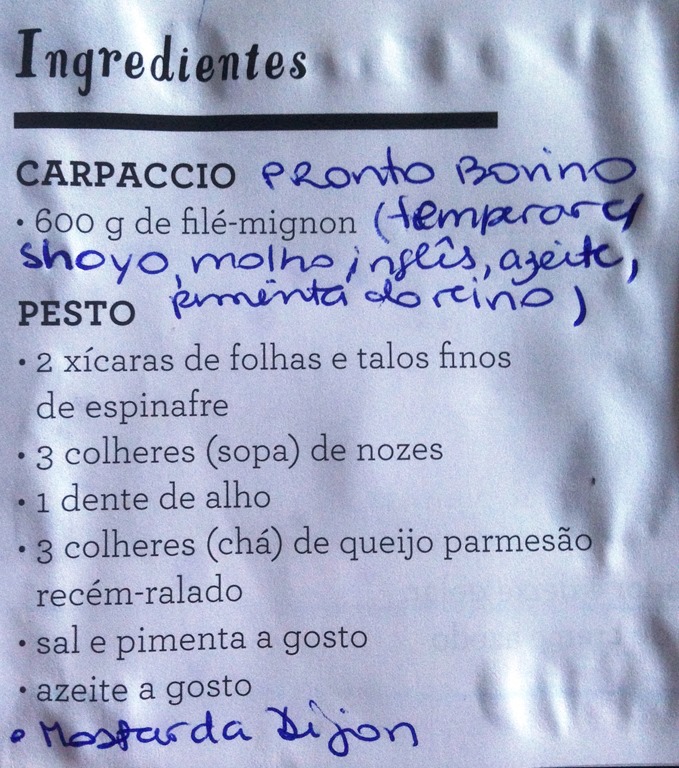 Ingredientes
CARPACCIO PRonto Bovino
• 600 g de filé-mignon (temperar c/
shoyo, molho inglês, azeite,
pimenta do reino)
PESTO
• 2 xícaras de folhas e talos finos
de espinafre
• 3 colheres (sopa) de nozes
• 1 dente de alho
• 3 colheres (chá) de queijo parmesão
recém-ralado
• sal e pimenta a gosto
• azeite a gosto
• Mostarda Dijon